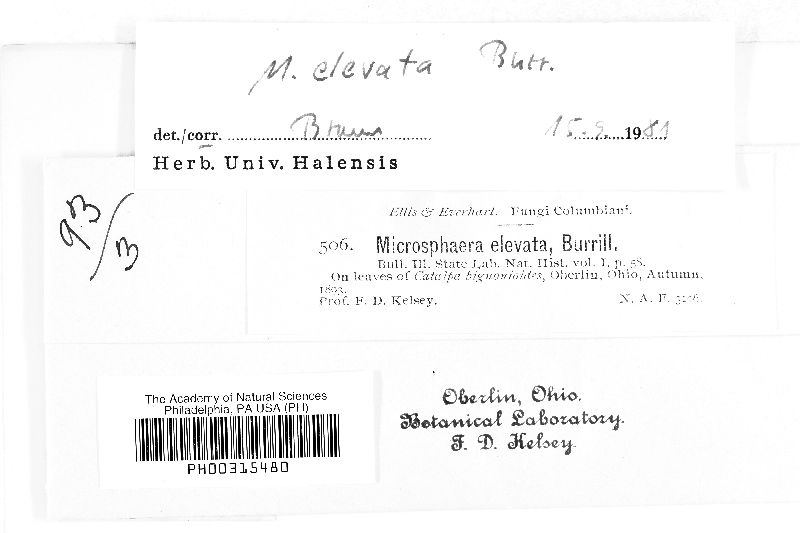 M. elevata Burr.
det./corr. Braun 15. 9. 1981
Herb. Univ. Halensis
93/B
Ellis & Everhart. Fungi Columbiani.
506. Microsphaera elevata, Burrill.
Bull. Ill. State Lab. Nat. Hist. vol. I, p. 58.
On leaves of Catalpa bignonioides, Oberlin, Ohio, Autumn,
1893.
Prof. F. D. Kelsey. N. A. F.
The Academy of Natural Sciences
Philadelphia, PA USA (PH)
PH00315480
Oberlin, Ohio.
Botanical Laboratory.
F. D. Kelsey.